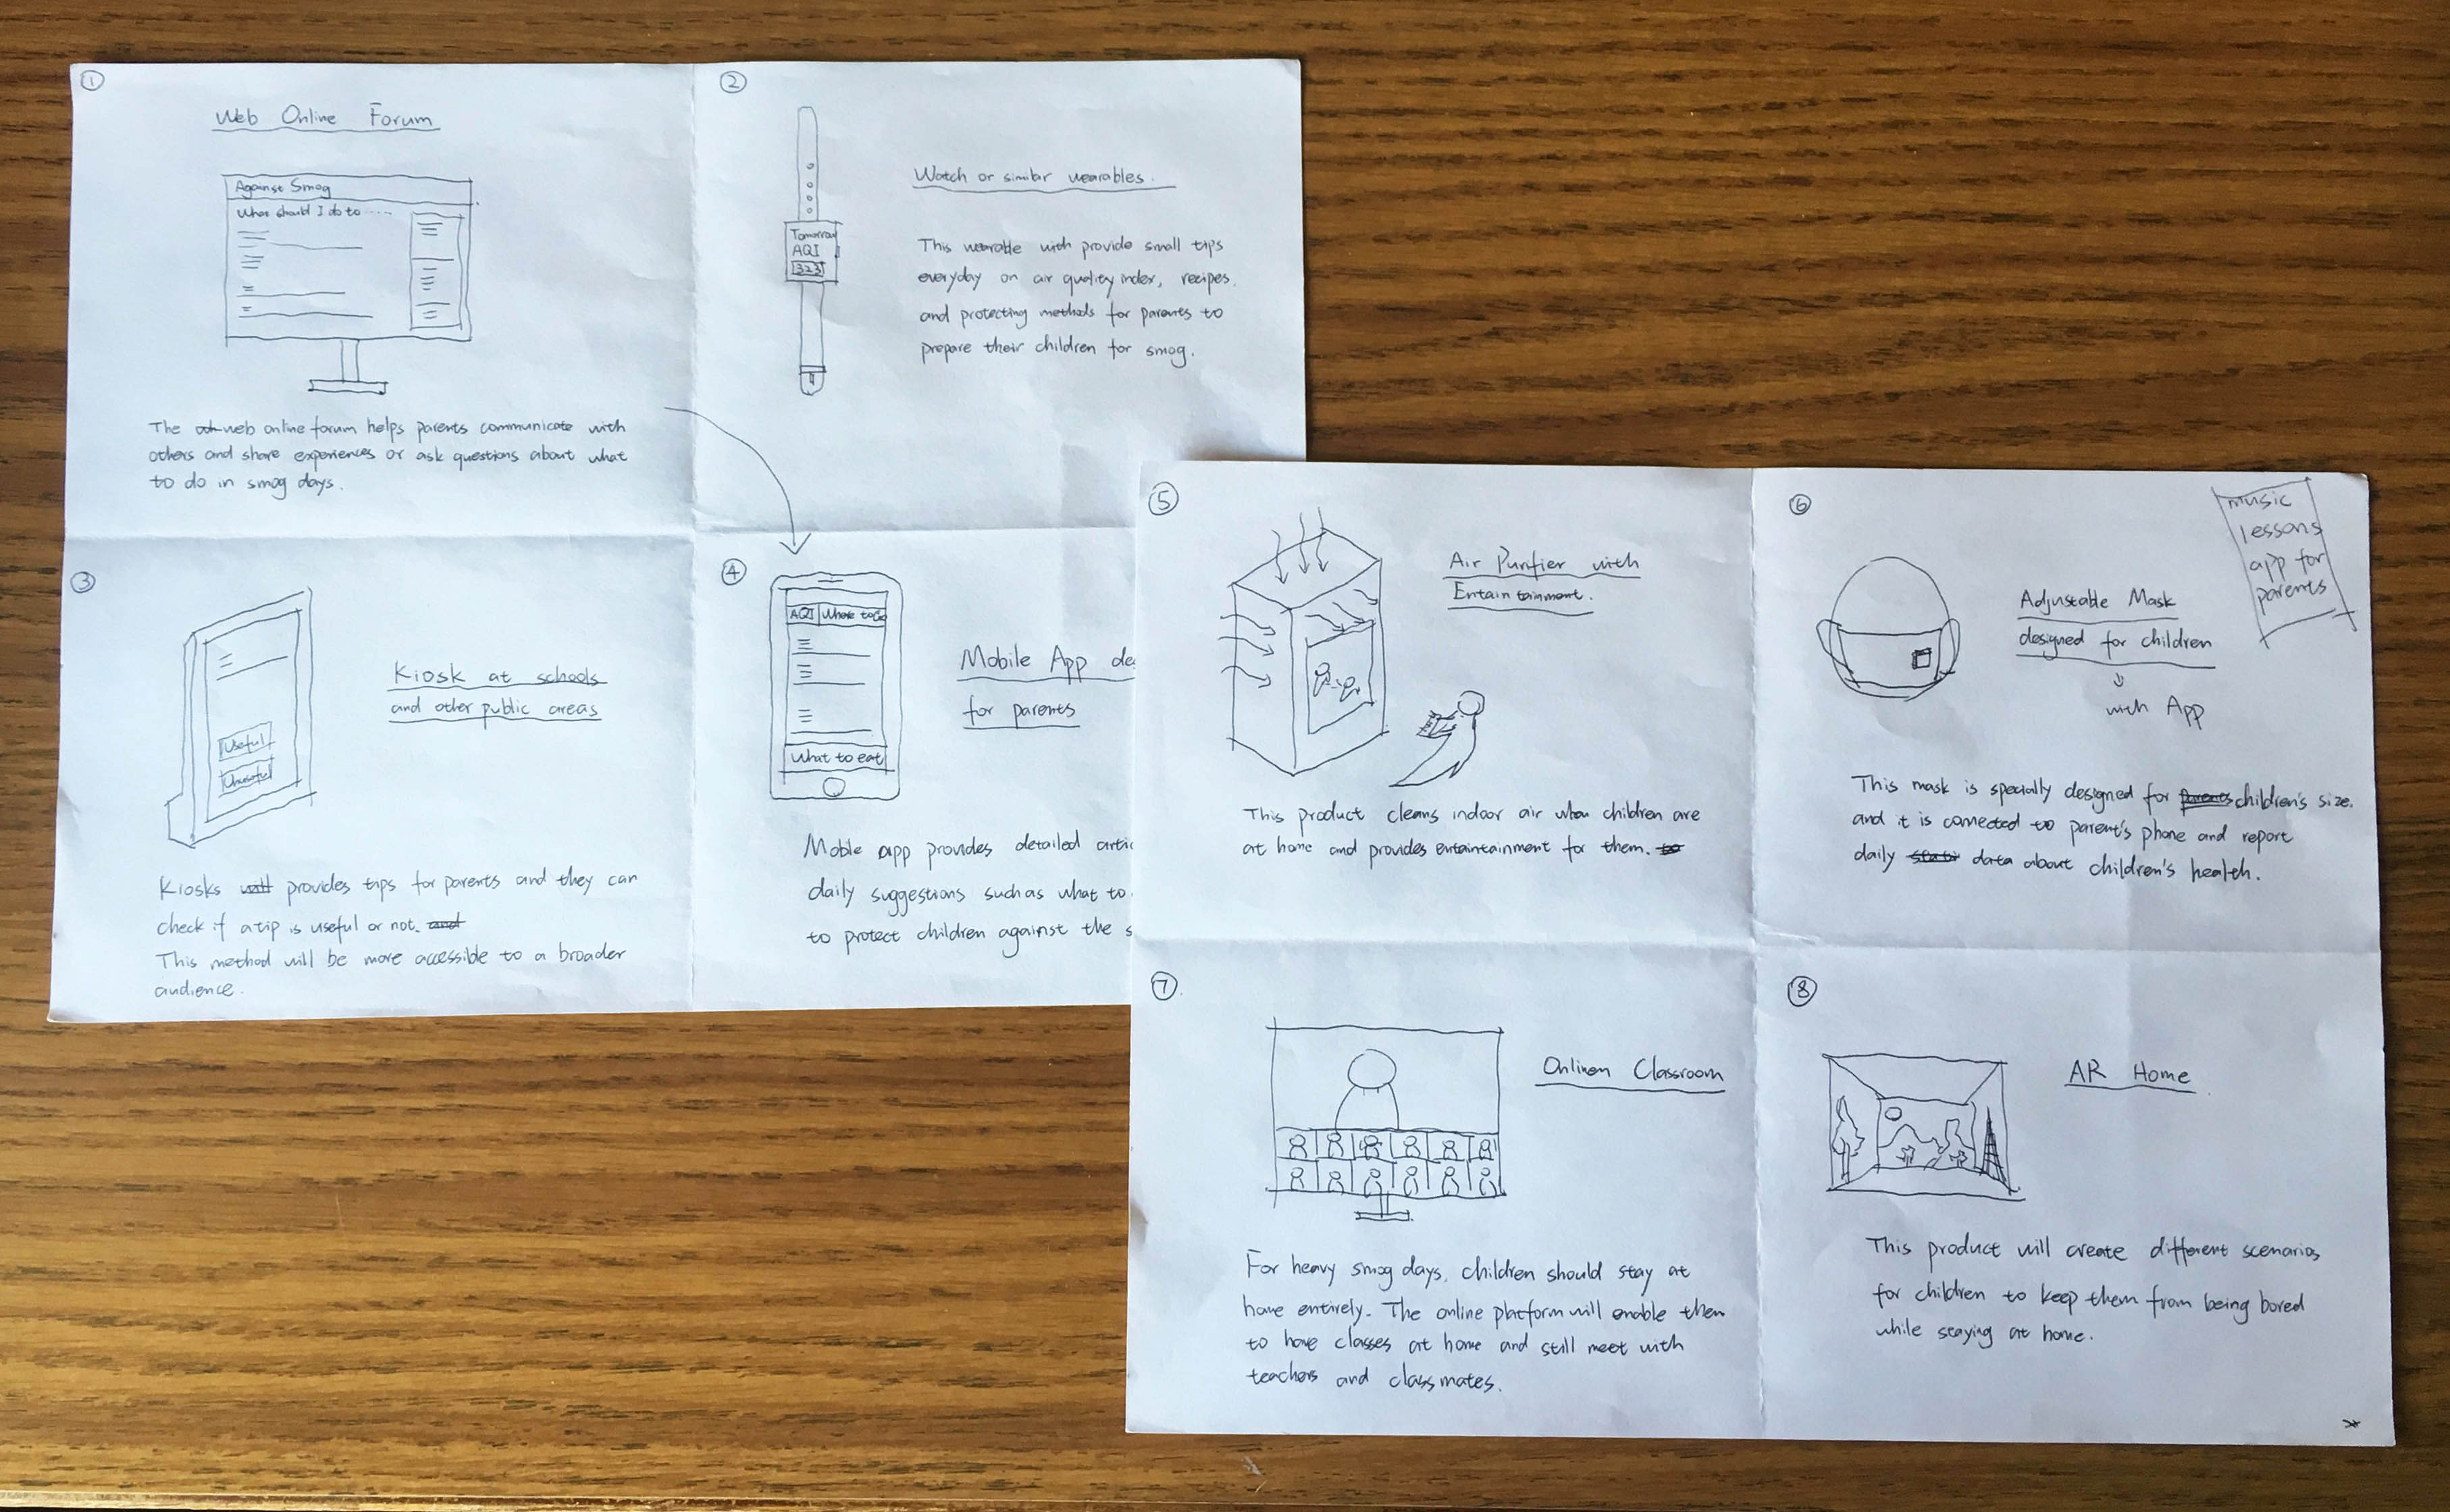 ①
Web Online Forum
Against Smog
What should I do to .....
The web online forum helps parents communicate with
others and share experiences or ask questions about what
to do in smog days.
②
Tomorrow
AQI
323
Watch or similar wearables.
This wearable with provide small tips
everyday on air quality index, recipes,
and protecting methods for parents to
prepare their children for smog.
③
Useful
Unuseful
Kiosk at schools
and other public areas
Kiosks will provides tips for parents and they can
check if a tip is useful or not. and
This method will be more accessible to a broader
audience.
④
AQI Where to Go
What to eat
Mobile App de
for parents
Moble app provides detailed artic
daily suggestions such as what to
to protect children against the s
⑤
Air Purifier with
Entaintainment.
This product cleans indoor air when children are
at home and provides entaintainment for them. to
⑥
music
lessons
app for
parents
Adjustable Mask
designed for children
with App
This mask is specially designed for parents children's size.
and it is connected to parent's phone and report
daily data about children's health.
⑦
Onlinen Classroom
For heavy smog days, children should stay at
home entirely. The online platform will enable them
to have classes at home and still meet with
teachers and classmates.
⑧
AR Home
This product will create different scenarios
for children to keep them from being bored
while staying at home.